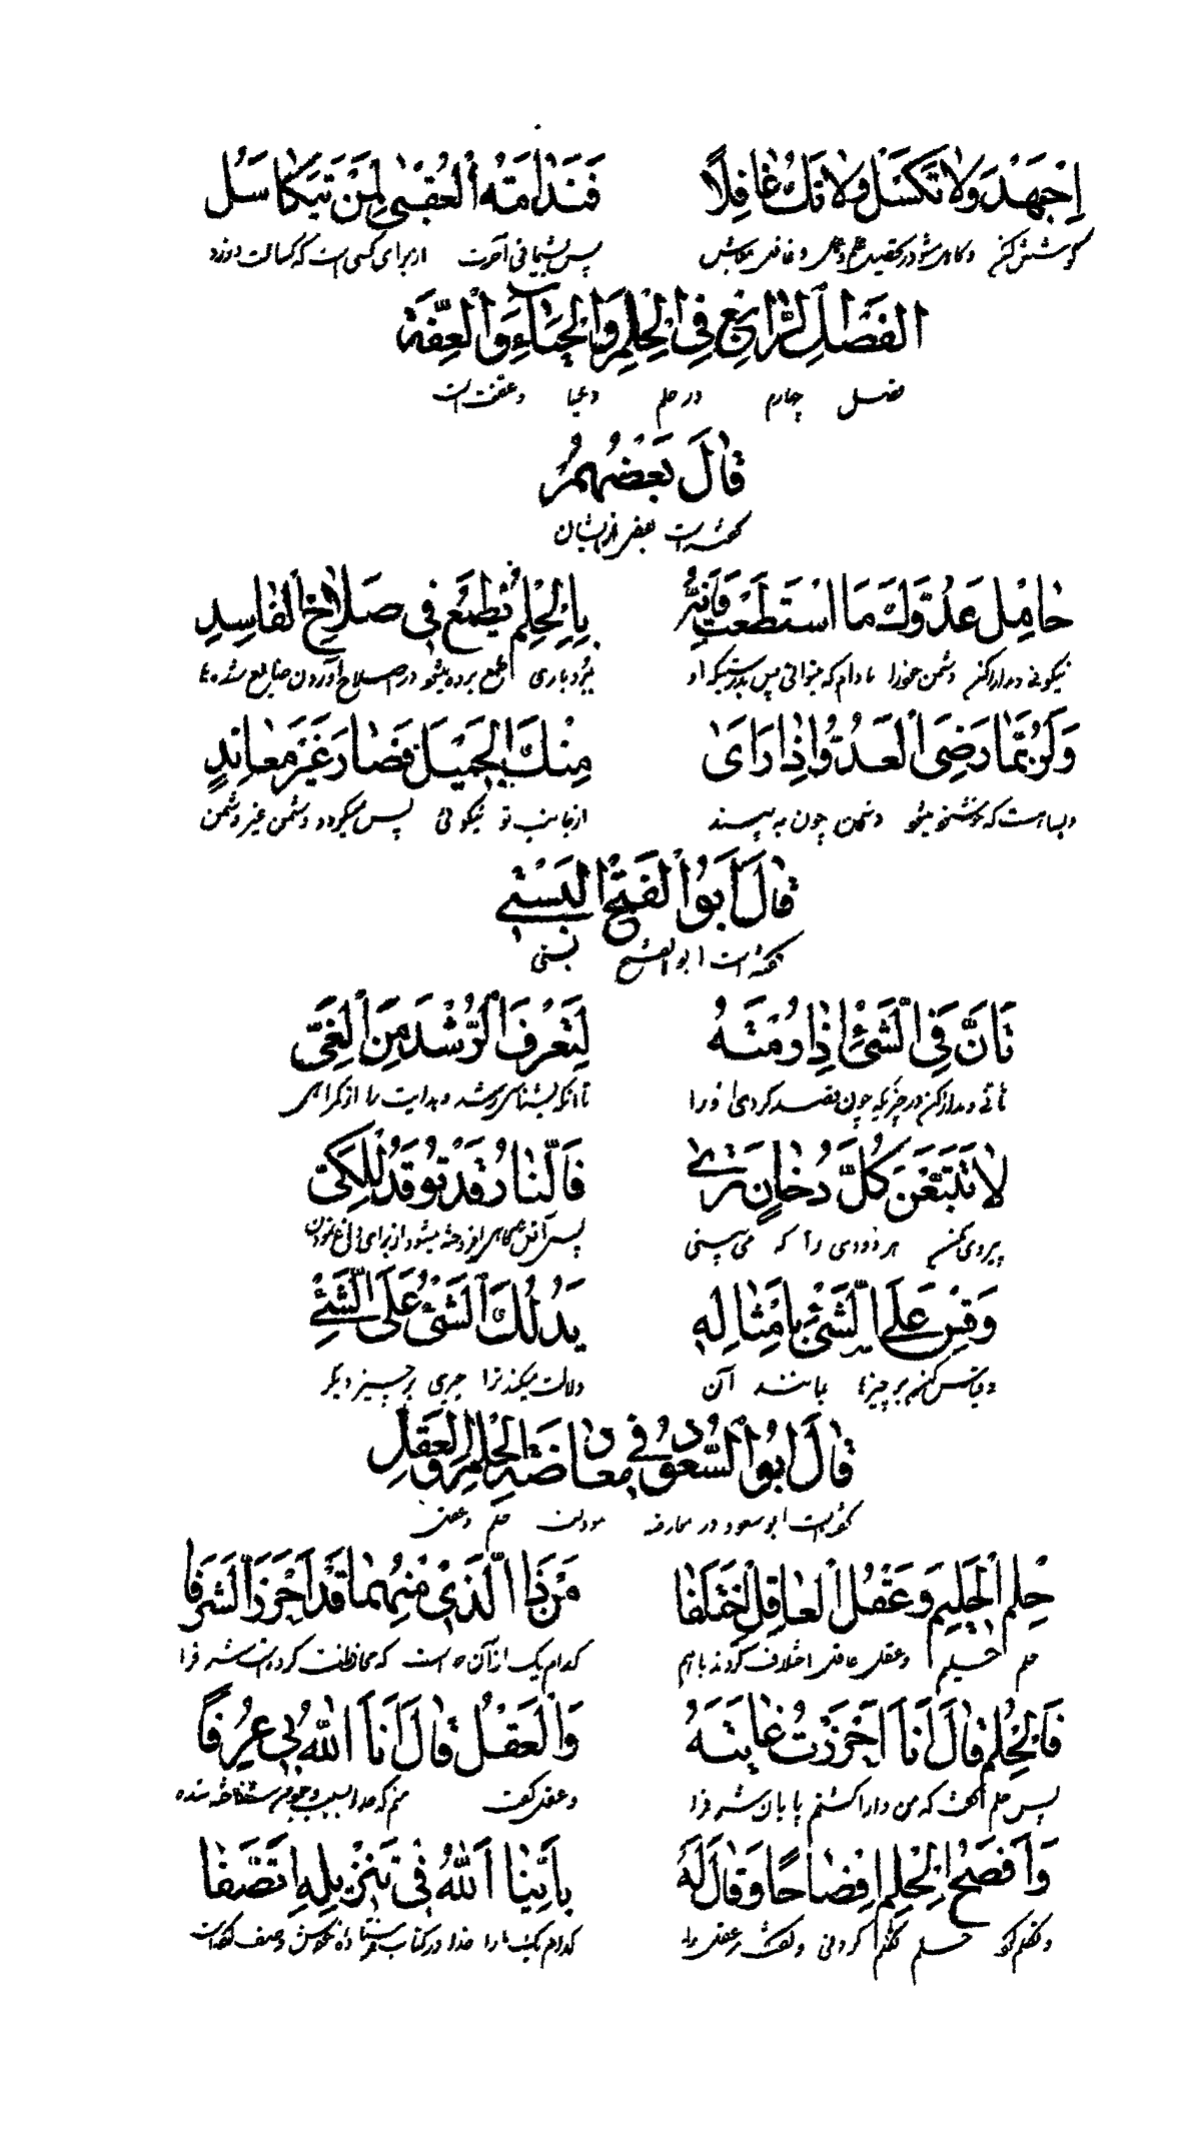 اِجْهَدْ وَلَا تَكْسَلْ وَلَا تَكُ غَافِلًا فَنَدَامَةُ الْعُقْبٰى لِمَنْ يَتَكَاسَلُ
كوشش كن و كاهل مشو در تحصيل علم و عمل و غافل مباش پس پشيمانی آخرت از برای كسی است كه كسالت ورزد
اَلْفَصْلُ الرَّابِعُ فِی الْحِلْمِ وَالْحَيَاءِ وَالْعِفَّةِ
فصل چهارم در حلم و حيا و عفت است
قَالَ بَعْضُهُمْ
گفته است بعض از ايشان
خَامِلْ عَدُوَّكَ مَا اسْتَطَعْتَ فَاِنَّهُ بِالْحِلْمِ يُطْمَعُ فِی صَلَاحِ الْفَاسِدِ
نيكوئی و مدارا كن دشمن خود را مادام كه ميتوانی پس بدرستيكه او ببردباری طمع برده ميشود در صلاح آوردن ضايع شده
وَلَرُبَّمَا رَضِیَ الْعَدُوُّ اِذَا رَاٰی مِنْكَ الْجَمِيْلَ فَصَارَ غَيْرَ مُعَانِدٍ
و بسا هست كه خوشنود ميشود دشمن چون به بيند از جانب تو نيكوئی پس ميگردد دشمن غير دشمن
قَالَ اَبُوا الْفَتْحِ الْبَسْتِی
گفته است ابو الفتح بستی
تَاَنَّ فِی الشَّیْءِ اِذَا رُمْتَهُ لِتَعْرِفَ الرُّشْدَ مِنَ الْغَیِّ
تأنی و مدارا كن در چيزيكه چون قصد كردی او را تا آنكه بشناسی رشد و هدايت را از گمراهی
لَا تَتْبَعَنْ كُلَّ دُخَانٍ تَرٰی فَالنَّارُ قَدْ تُوقَدُ لِلْكَیِّ
پيروی مكن هر دودی را كه می بينی پس آتش گاهی افروخته ميشود از برای داغ نمودن
وَقِسْ عَلَی الشَّیْءِ بِاَمْثَالِهِ يَدُلُّكَ الشَّیْءُ عَلَی الشَّیْءِ
و قياس كن بر چيز بمانند آن دلالت ميكند ترا چيزی بر چيز ديگر
قَالَ اَبُوا السُّعُودِ فِی مُعَارَضَةِ الْحِلْمِ وَالْعَقْلِ
گفته است ابو سعود در معارضه حلم و عقل
حِلْمُ الْحَلِيْمِ وَعَقْلُ الْعَاقِلِ اخْتَلَفَا مَنْ ذَا الَّذِیْ مِنْهُمَا قَدْ اَحْرَزَ الشَّرَفَا
حلم حليم و عقل عاقل اختلاف كردند با هم كدام يك از آن دو است كه محافظت كرده است شرف را
فَالْحِلْمُ قَالَ اَنَا اَحْرَزْتُ غَايَتَهُ وَالْعَقْلُ قَالَ اَنَا اللّٰهُ بِی عُرِفَا
پس حلم گفت كه من دارا گشتم پايان شرف را و عقل گفت منم كه خدا بسبب وجودم شناخته شده
وَاَفْصَحَ الْحِلْمُ اِفْصَاحًا وَقَالَ لَهُ بِاَيِّنَا اللّٰهُ فِی تَنْزِيْلِهِ اتَّصَفَا
حلم گفت عقل را كدام يك ما را خدا در كتاب وصف